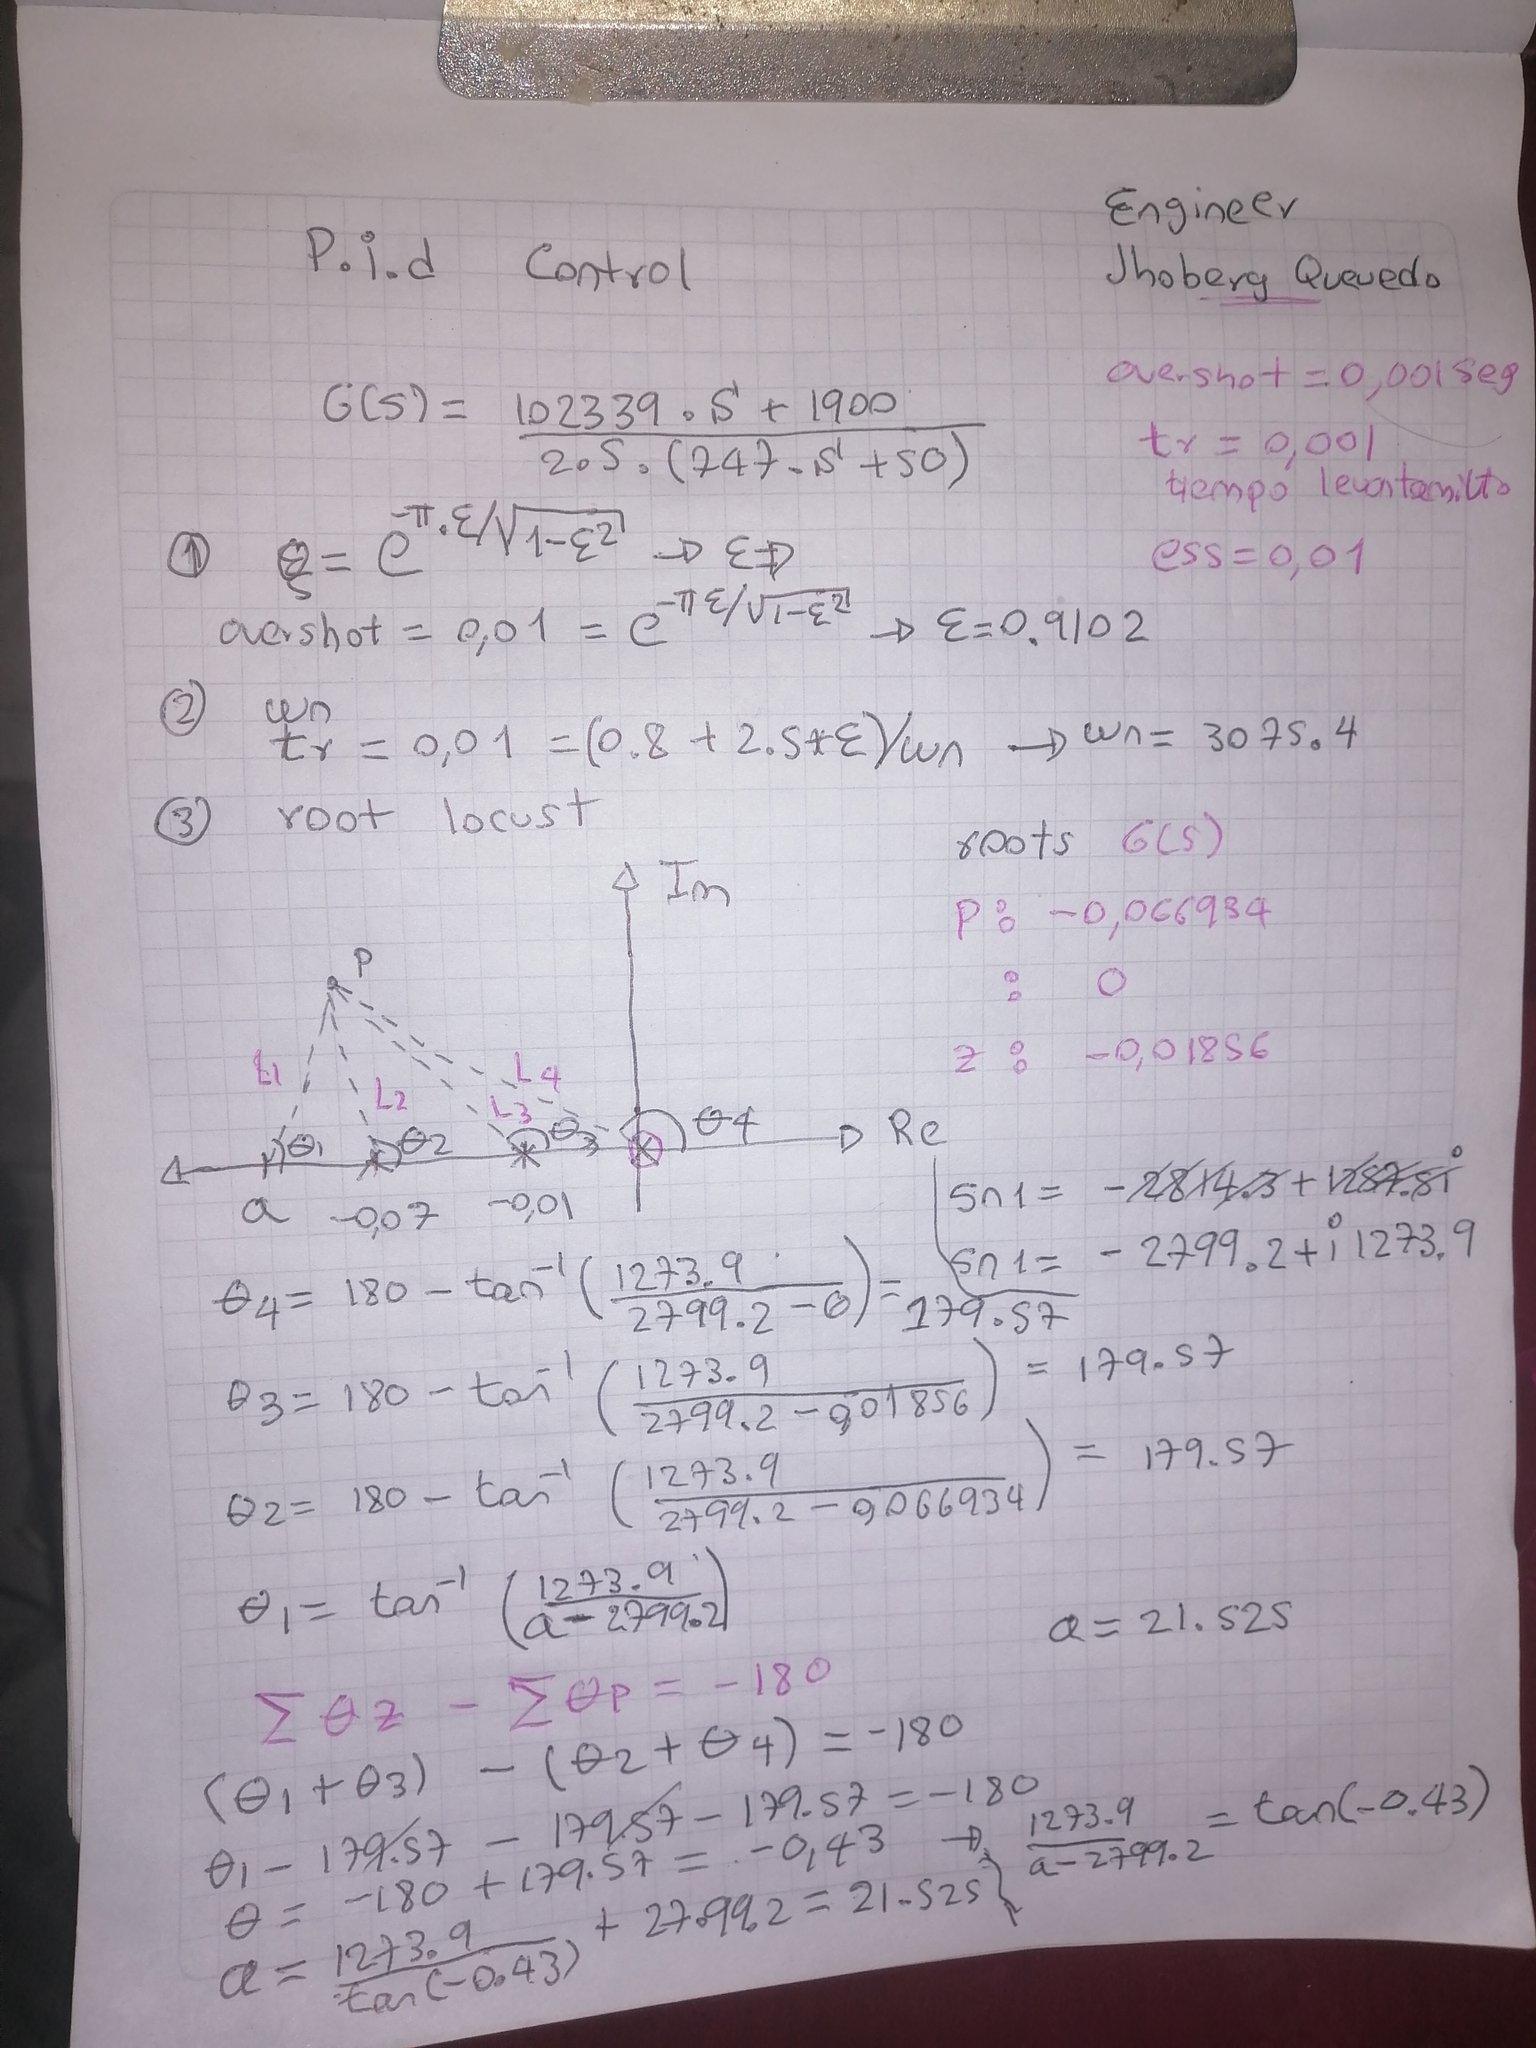 Engineer
P.i.d Control
Jhoberg Quevedo
overshot = 0,001 seg
G(S) = 102339.S + 1900 / 2.S.(747.S + 50)
tr = 0,001
tiempo
ess = 0,01
① = e^-π.ξ/√1-ξ² → ξ⇒
overshot = 0,01 = e^-πξ/√1-ξ² → ξ=0.9102
② wn
tr = 0,01 = (0.8 + 2.5*ξ)/wn → wn = 3075.4
③ root locust
roots G(S)
Im
P: -0,066934
P
: 0
z: -0,01856
L1 L2 L3 L4
θ1 θ2 θ3 θ4 Re
a -0,07 -0,01
Sn1 = -2814.3 + 1287.8i
Sn1 = -2799.2 + i 1273.9
θ4 = 180 - tan⁻¹(1273.9 / 2799.2 - 0) = 179.57
θ3 = 180 - tan⁻¹(1273.9 / 2799.2 - 0,01856) = 179.57
θ2 = 180 - tan⁻¹(1273.9 / 2799.2 - 0,066934) = 179.57
θ1 = tan⁻¹(1273.9 / a - 2799.2)
a = 21.525
Σθz - Σθp = -180
(θ1 + θ3) - (θ2 + θ4) = -180
θ1 - 179.57 - 179.57 - 179.57 = -180
θ = -180 + 179.57 = -0,43 → 1273.9 / a - 2799.2 = tan(-0.43)
a = 1273.9 / tan(-0.43) + 2799.2 = 21.525